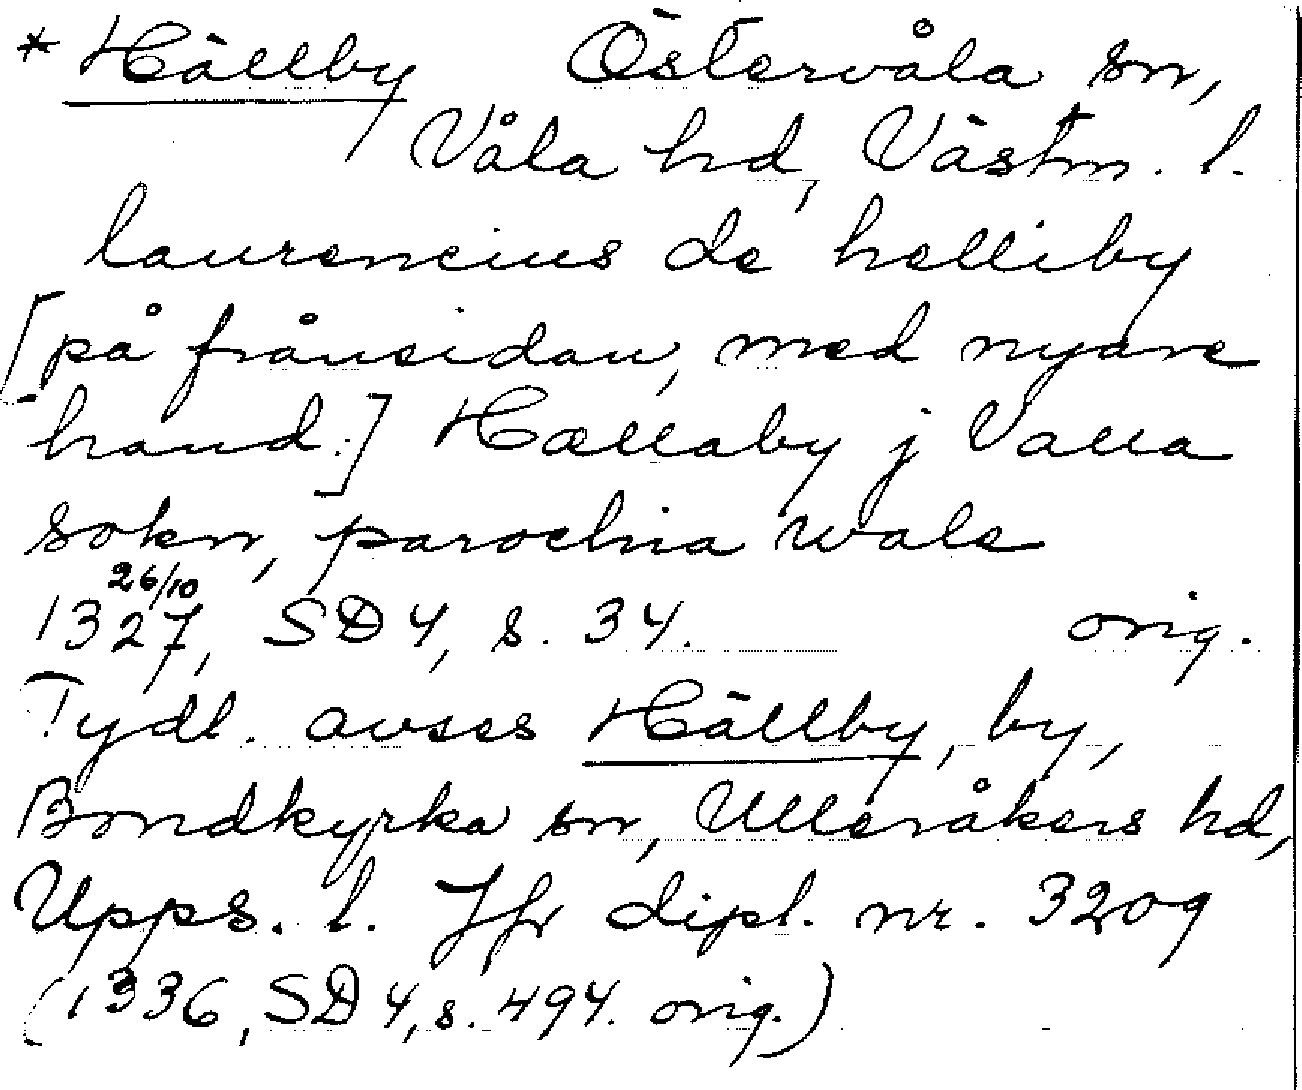 * Hällby Östervåla sn,
Våla hd, Västm. l.
laurencius de helliby
[på frånsidan, med nyare
hand:] Hællaby j Valla
sokn, parochia wale
1327 26/10, SD 4, s. 34. orig.
Tydl. avses Hällby, by,
Bondkyrka sn, Ulleråkers hd,
Upps. l. Jfr dipl. nr. 3209
(1336, SD 4, s. 494. orig.)